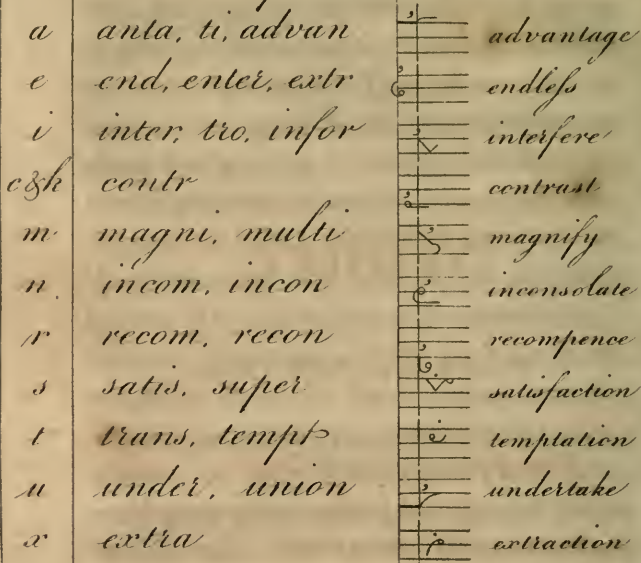 a anta, ti, advan advantage
e end, enter, extr endleſs
i inter, tro, infor interfere
c&k contr contrast
m magni, multi magnify
n incom, incon inconsolate
r recom, recon recompence
s satis, super satisfaction
t trans, tempt temptation
u under, union undertake
x extra extraction